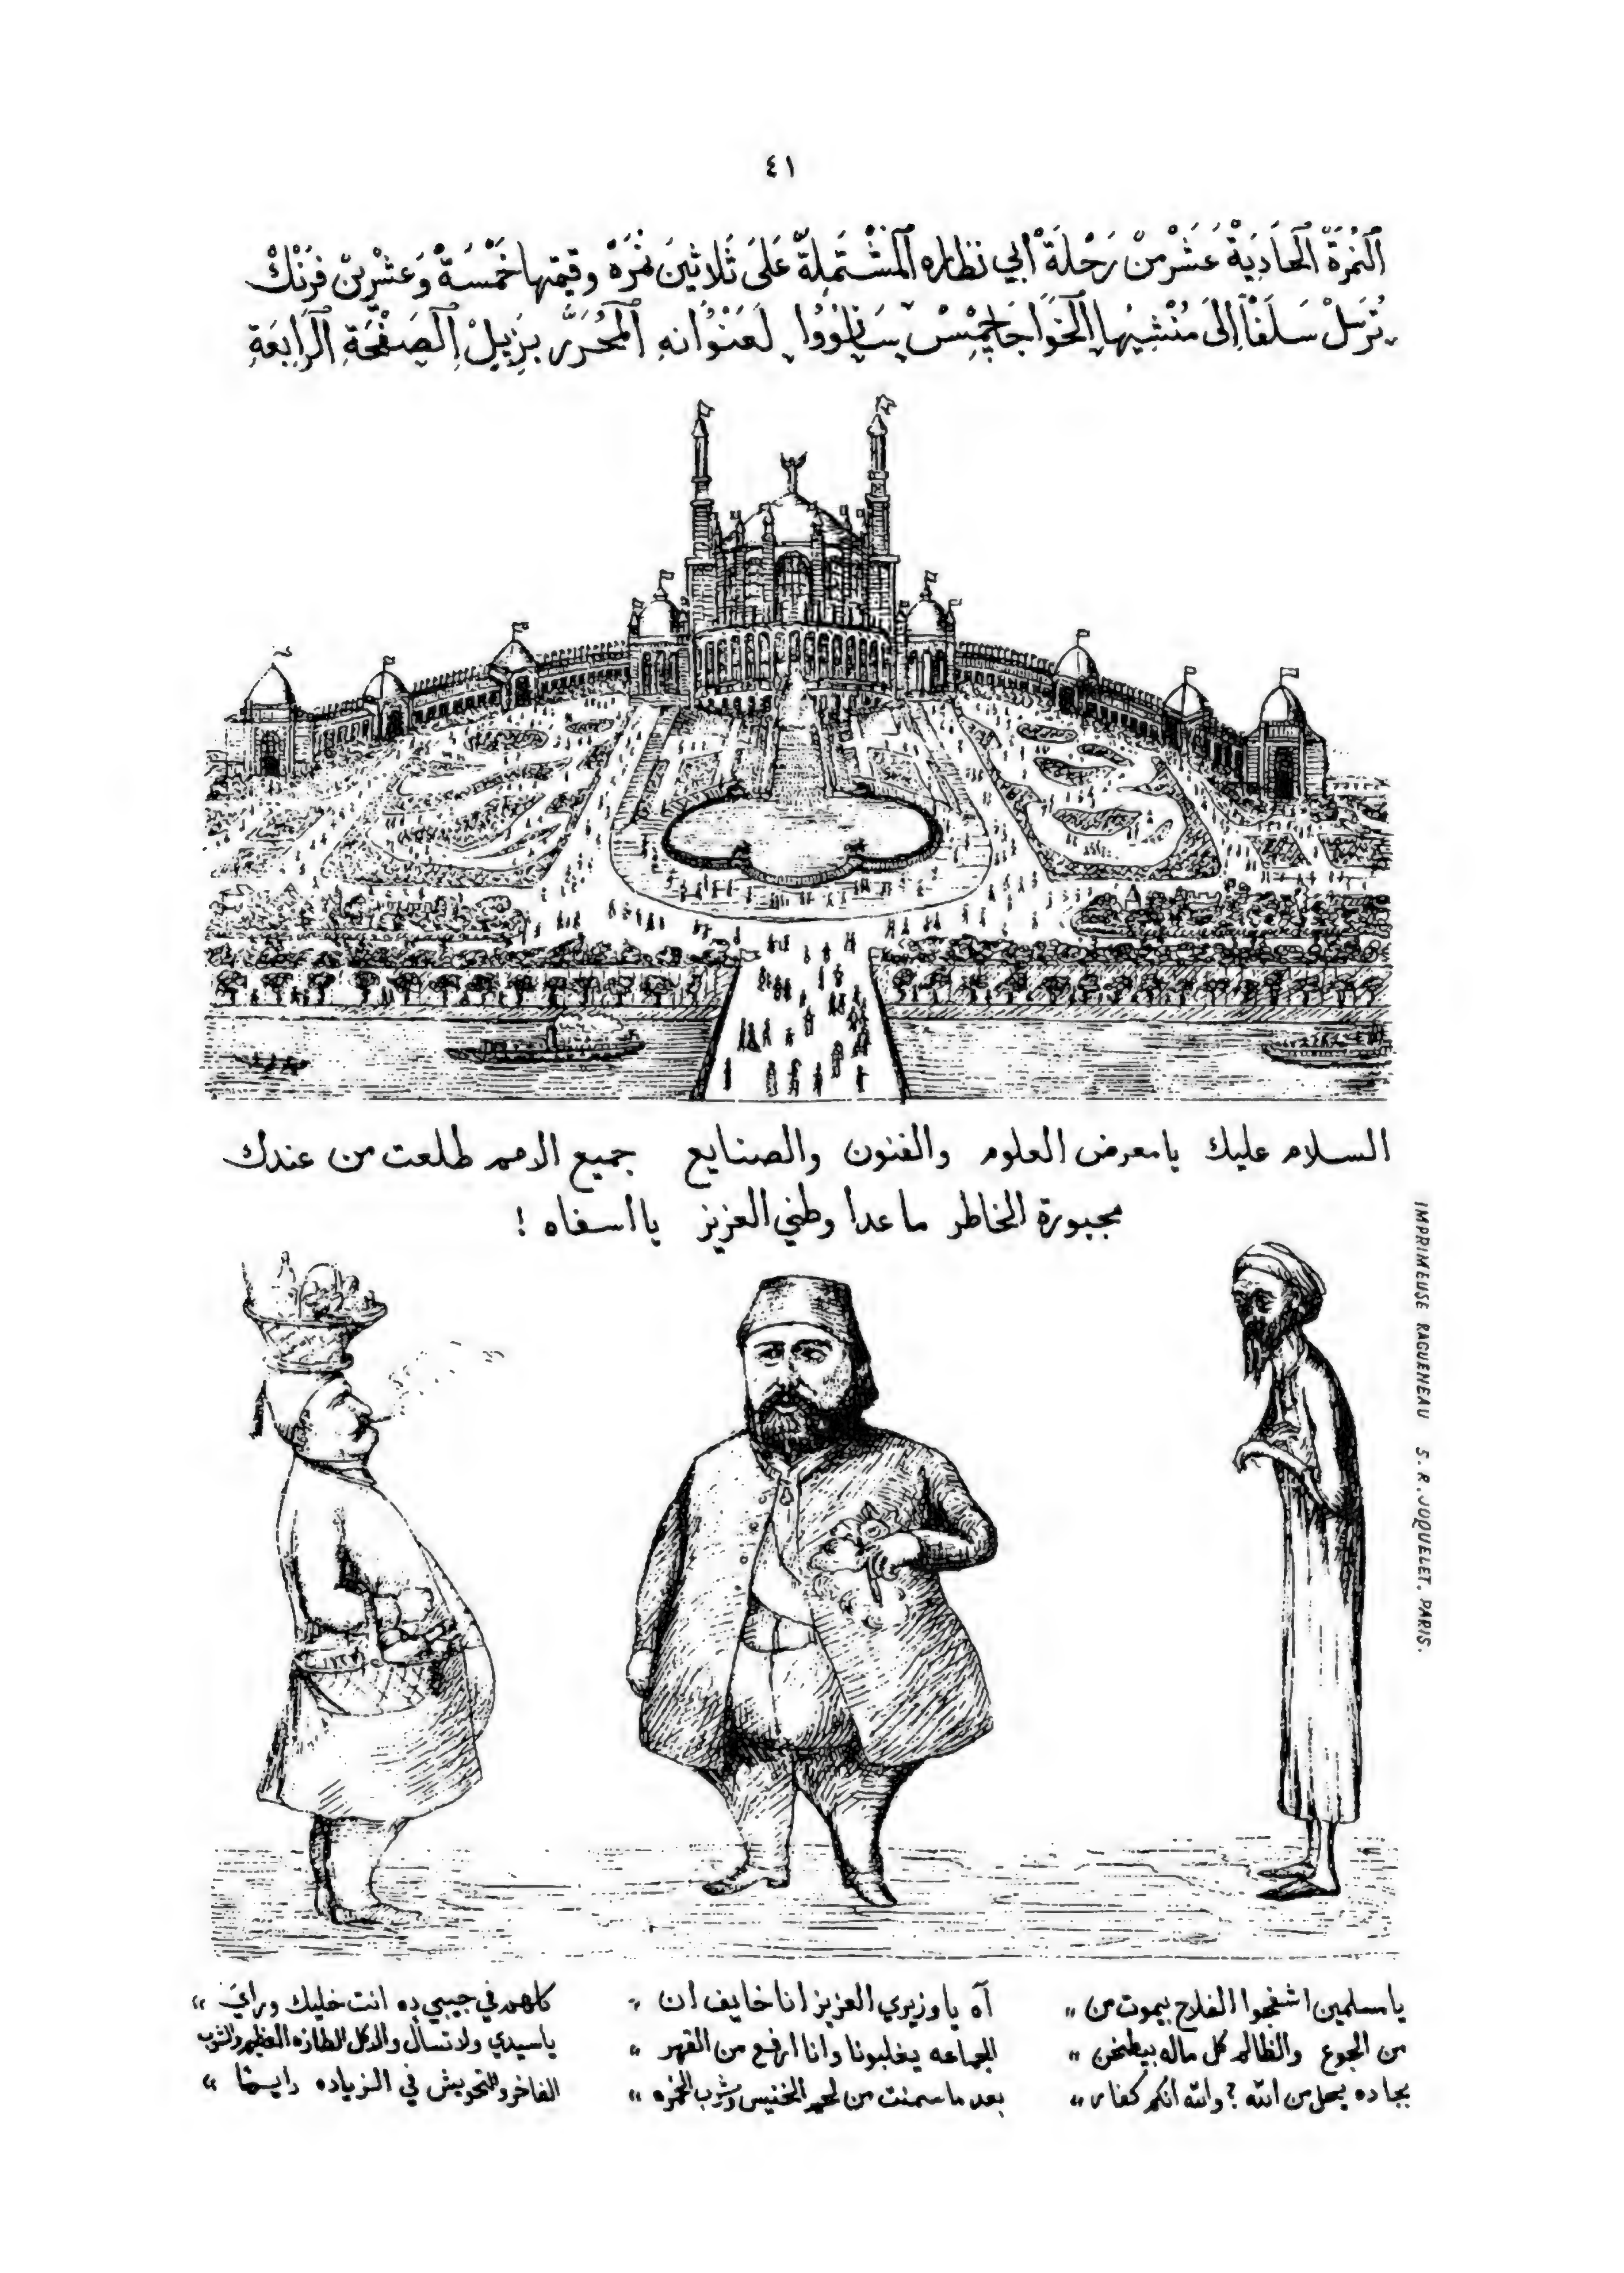 ٤١
اَلنُمْرَةْ اَلْحَادِيَةْ عَشَرْ مِنْ رَحْلَةْ أَبِي نظاره اَلْمُشْتَمِلَةْ عَلَى ثَلَاثِينَ نُمْرَةْ وقيمتها خَمْسَةْ وَعِشْرِينْ فَرَنْكْ
تُرْسَلْ سَلَفَاً إِلَى مُنْشِيهَا اَلْخَوَاجَا جِمْسْ سَانُووُا لِعَنْوُانه اَلْمُحَرَّر بِزِيلْ اَلْصَفْحَةِ اَلْرَابِعَةِ
السلام عليك يا معرض العلوم والفنون والصنايع جميع الامم طلعت من عندك
مجبورة الخاطر ما عدا وطني العزيز يا اسفاه !
IMPRIMEUSE RAGUENEAU S. R. JOQUELET. PARIS.
١٢٩٧
يا مسلمين اشفحوا الفلاح بيموت من "
من الجوع والظالم كل ماله بيطخن "
بجا ده يحل من الله ؟ والله انكم كفار "
آه يا وزيري العزيز انا خايف ان "
الجماعه يغلبونا وانا ارفع من القهر "
بعد ما سمنت من لحم الخنيس وشرب الخمره "
كلهم في جيبي ده انت خليك وراي "
يا سيدي ولا تسأل والاكل الطازه العظيم والشرب
الفاخر والتحويش في الزياده دايماً "